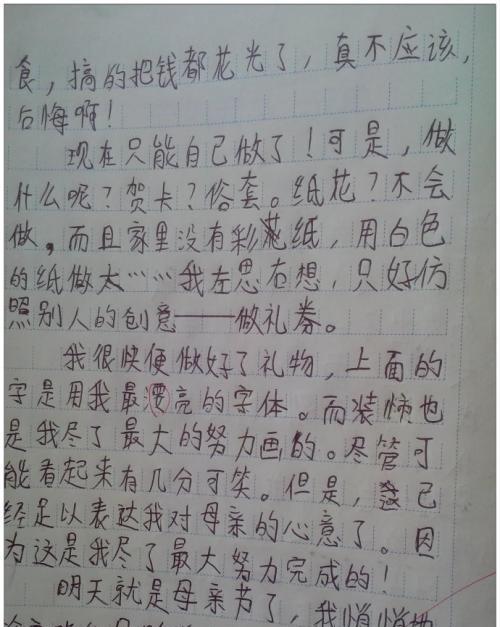 食，搞的把钱都花光了，真不应该，
后悔啊！
现在只能自己做了！可是，做
什么呢？贺卡？俗套。纸花？不会
做，而且家里没有彩纸，用白色
的纸做太……我左思右想，只好仿
照别人的创意——做礼券。
我很快便做好了礼物，上面的
字是用我最漂亮的字体。而装饰也
是我尽了最大的努力画的。尽管可
能看起来有几分可笑。但是，这已
经足以表达我对母亲的心意了。因
为这是我尽了最大努力完成的！
明天就是母亲节了，我悄悄地